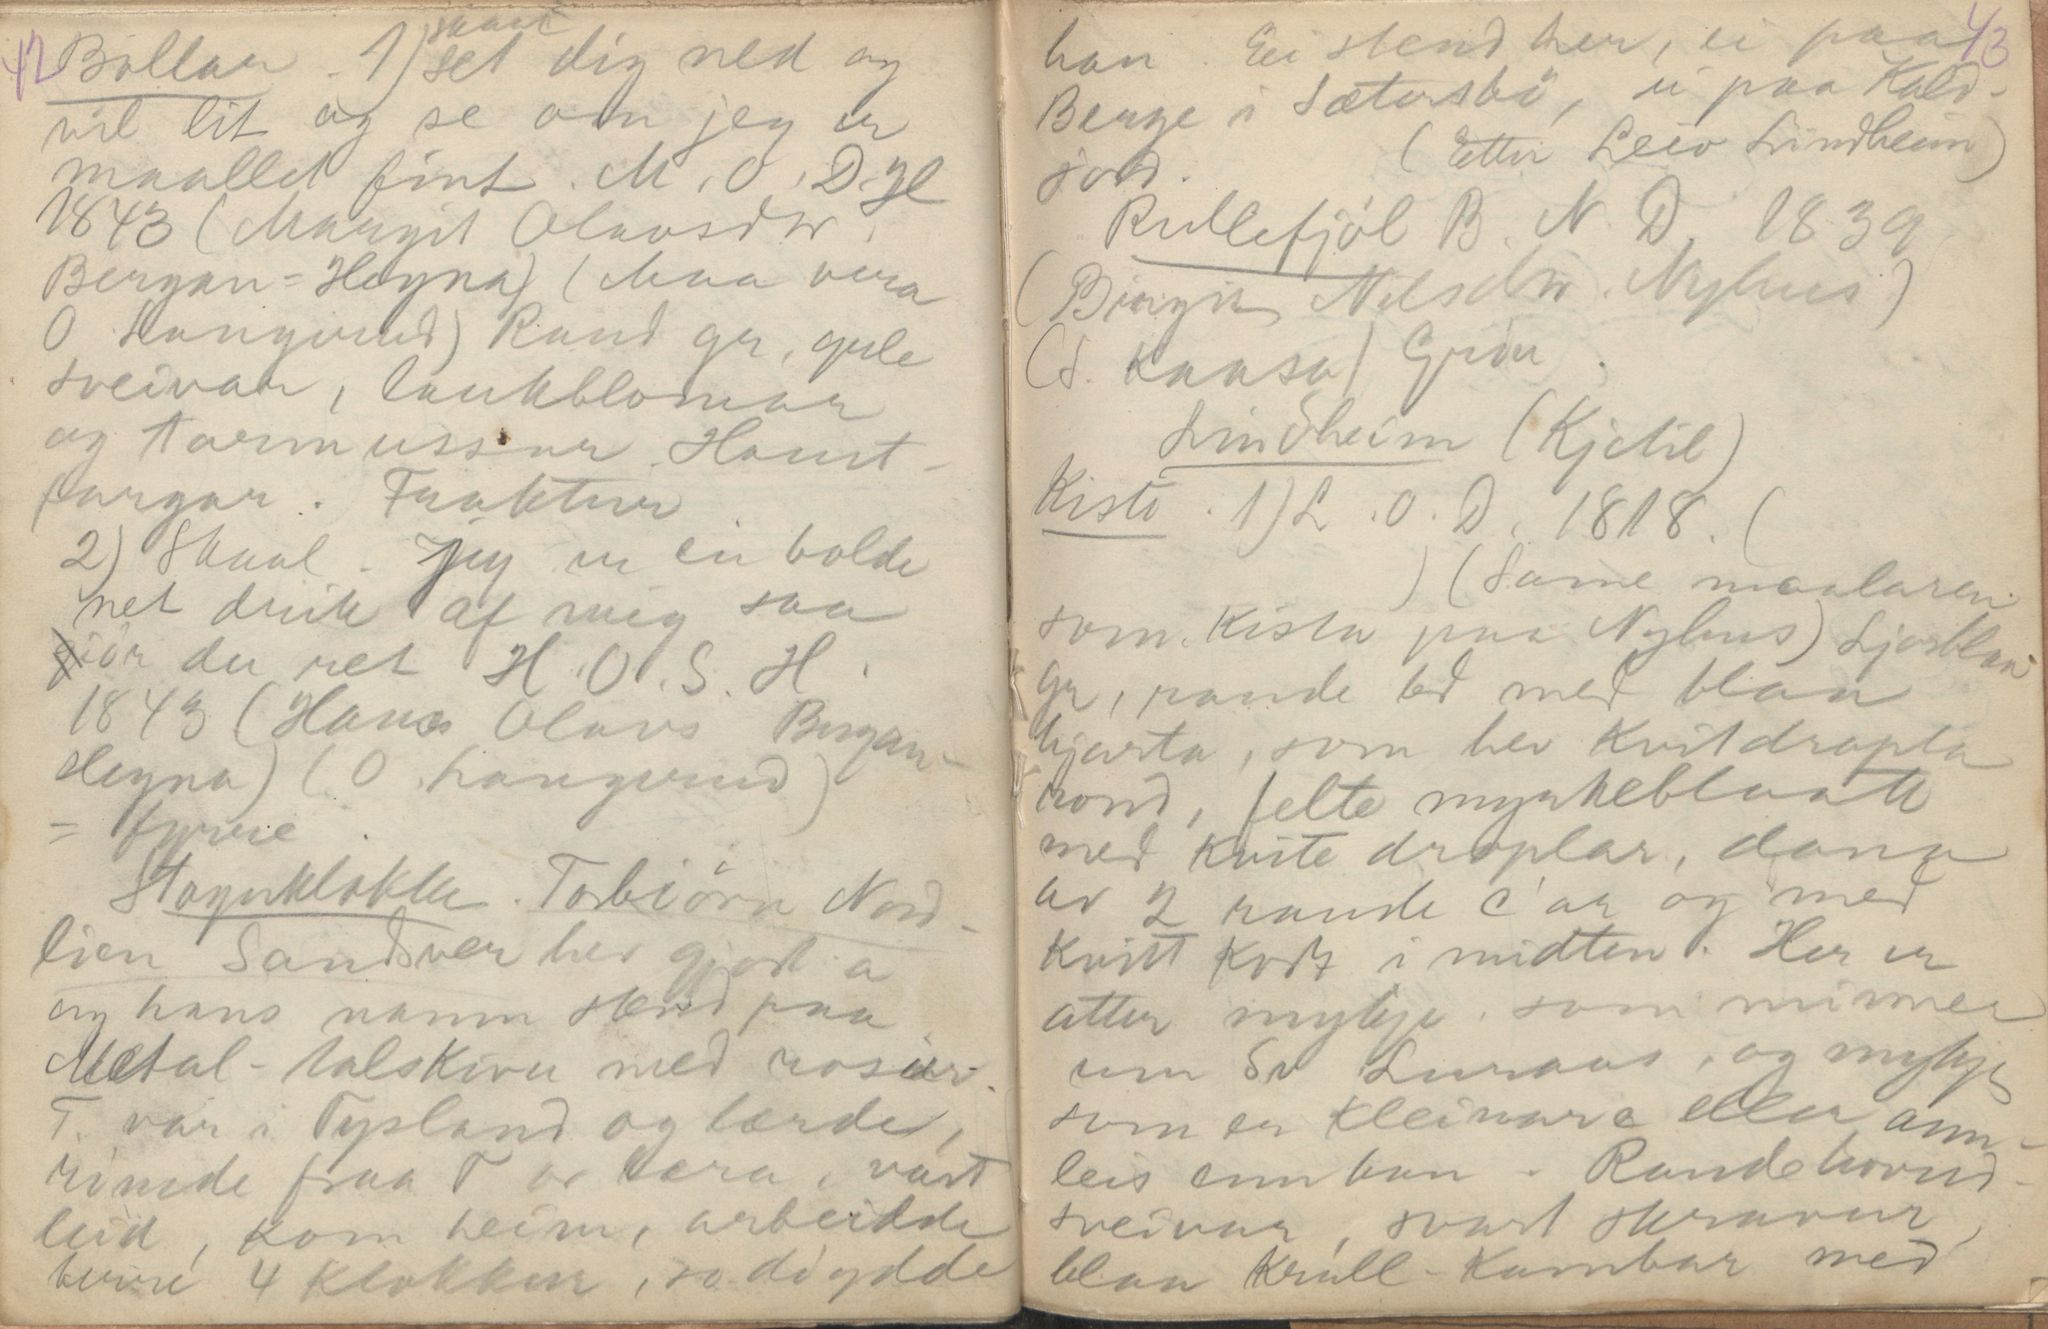 42
skaal
Bollar. 1) set dig ned og
vil lit og se om jeg er
maallet fint. M. O. D. H
1843 (Margit Olavsdtr.
Bergan-Hegna) (Maa vera
O Langerud) Raud gr, gule
sveivar, laukblomar
og tormussur. Haust-
fargar. Fraktur
2) Skaal. Jeg er en bolde
net drik af mig saa
giør du ret H. O. S. H.
1843 (Hans Olavs Bergan-
Hegna) (O. Langerud)
= fyrre.
Stoguklokke. Torbiörn Nord-
lien Sandsver hev gjort a
og hans namn stend paa
Metal-talskiva med rosur.
T. var i Tysland og lærde,
rimde fraa T or læra, vart
leid, kom heim, arbeidde
berre 4 klokkur, so döydde
43
han. Ei stend her, ei paa
Berge i Sætersbö, ei paa Kald-
jord. (Etter Leiv Lindheim)
Rullefjöl B. N. D. 1839
(Birgit Nilsdtr. Nyhus)
(s. Kaasa) Grön.
Lindheim (Kjetil)
Kiste. 1) L. O. D. 1818. (
) (Same maalaren
som kista paa Nyhus) Ljosblaa
gr, raude bd med blaa
hjarta, som hev kvitdropta
rond, felte myrkeblaatt
med kvite droplar, dana
av 2 raude c'ar og med
kvitt kors i midten. Her er
atter mykje som minner
um Sv Luraas, og mykje
som er kleinare eller ann-
leis enn han. Raude hovud-
sveivar, svart skravur,
blaa krull-kambar med